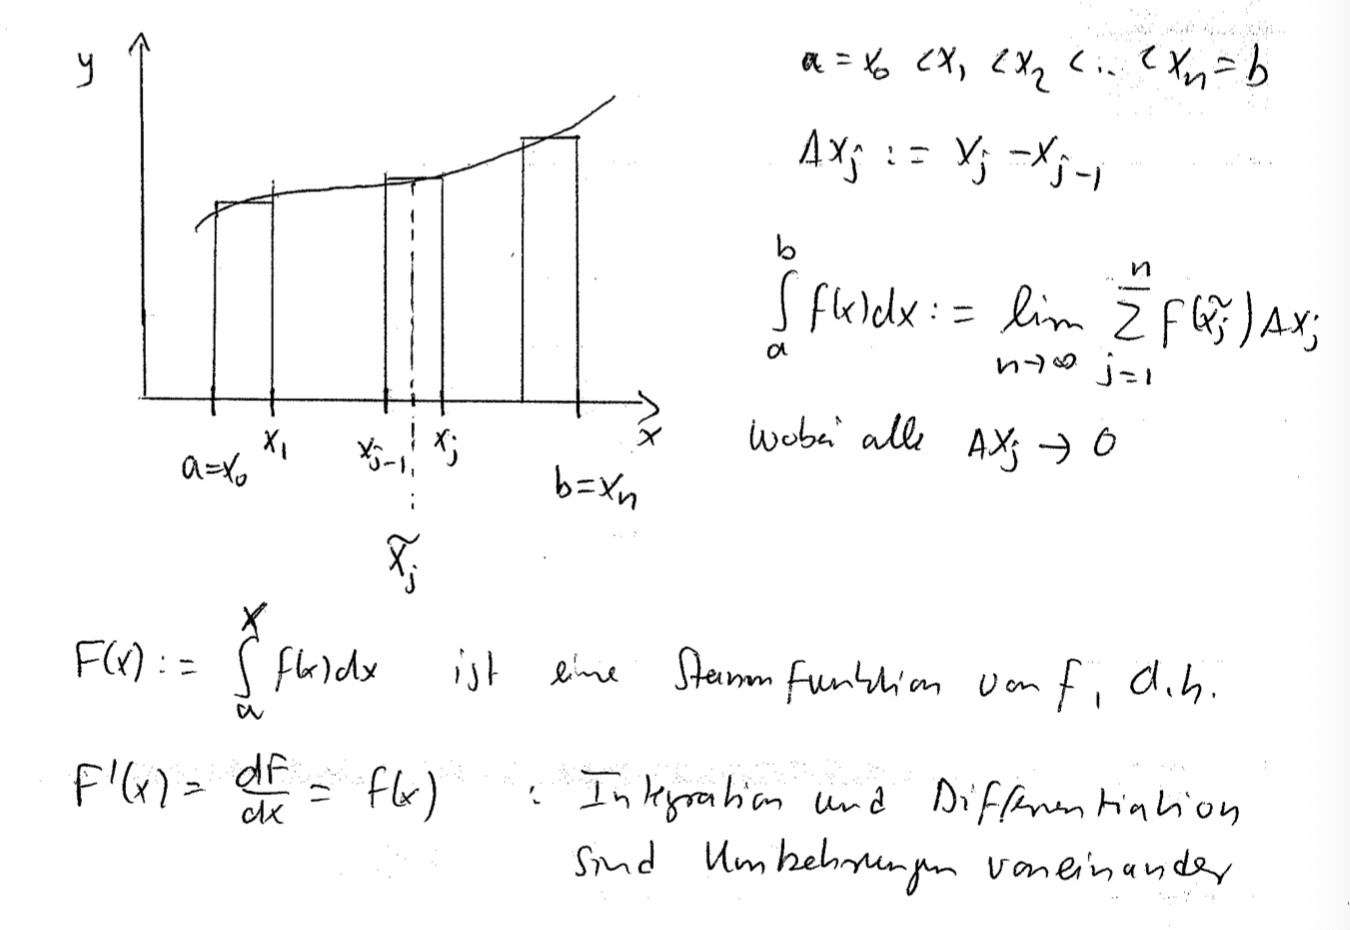 y
a = x₀ < x₁ < x₂ < ... < xₙ = b
Δxⱼ := xⱼ - xⱼ₋₁
∫ₐᵇ f(x)dx := lim_{n→∞} ∑_{j=1}^{n} f(x̃ⱼ) Δxⱼ
wobei alle Δxⱼ → 0
a=x₀ x₁ xⱼ₋₁ xⱼ b=xₙ x
x̃ⱼ
F(x) := ∫ₐˣ f(x)dx ist eine Stammfunktion von f, d.h.
F'(x) = dF/dx = f(x) : Integration und Differentiation
sind Umkehrungen voneinander